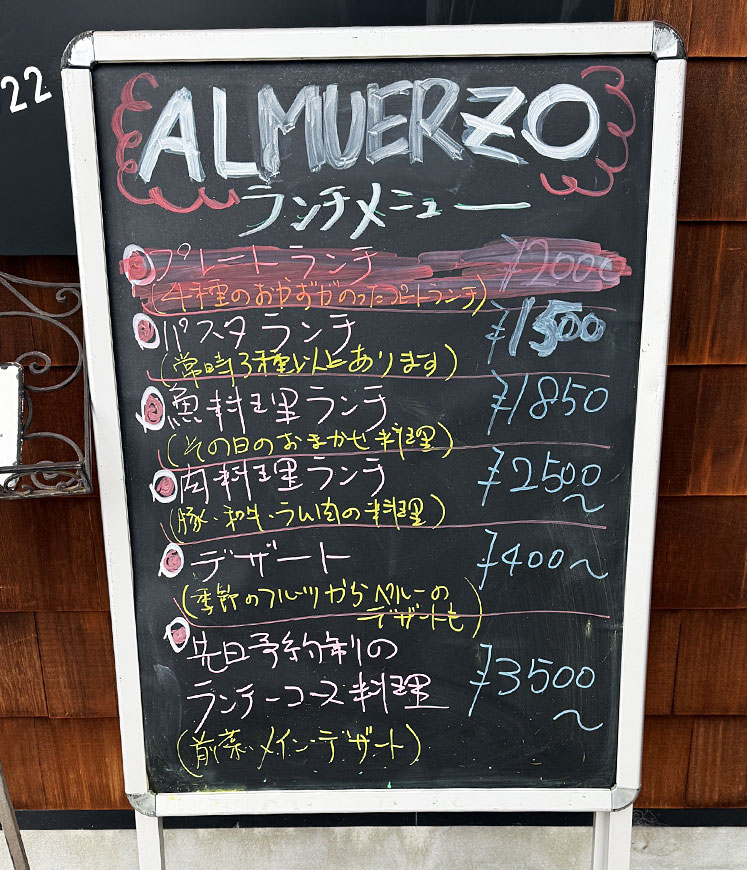 22
ALMUERZO
ランチメニュー
プレートランチ ¥2000
(4種のおかずがのったプレートランチ)
パスタランチ ¥1500
(常時3種以上あります)
魚料理ランチ ¥1850
(その日のおまかせ料理)
肉料理ランチ ¥2500~
(豚・和牛・ラム肉の料理)
デザート ¥400~
(季節のフルーツからペルーの
デザートも)
先日予約制の
ランチーコース料理 ¥3500~
(前菜・メイン・デザート)